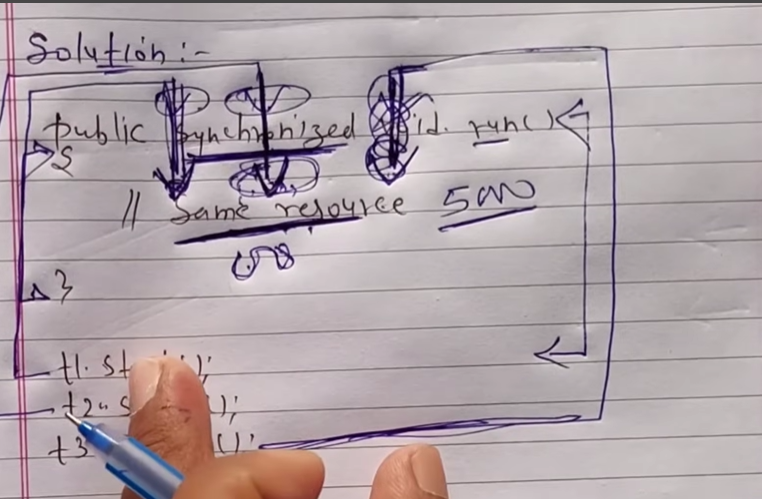 Solution :-
public synchronized void run()
{
// same resource 500
}
t1. start();
t2. s  ();
t3  ();